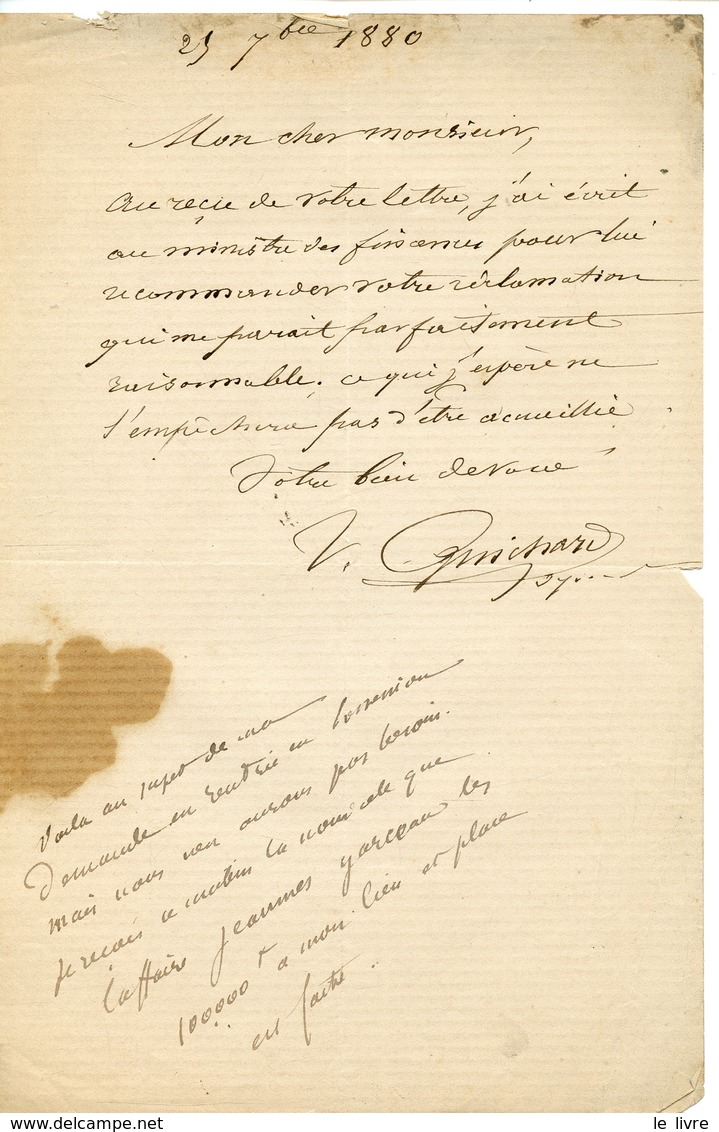 25 7bre 1880
Mon cher monsieur,
Au reçu de votre lettre, j'ai écrit
au ministre des finances pour lui
recommander votre réclamation
qui me parait parfaitement
raisonnable. ce qui j'espère ne
l'empêchera pas d'être accueillie.
Votre bien dévoué
V. Guichard
Voila au sujet de ma
demande en rentrée en possession
mais nous n'en aurons pas besoin.
Je reçois ce matin la nouvelle que
l'affaire les
100000 a mon lieu et place
est faite.
www.delcampe.net
le livre